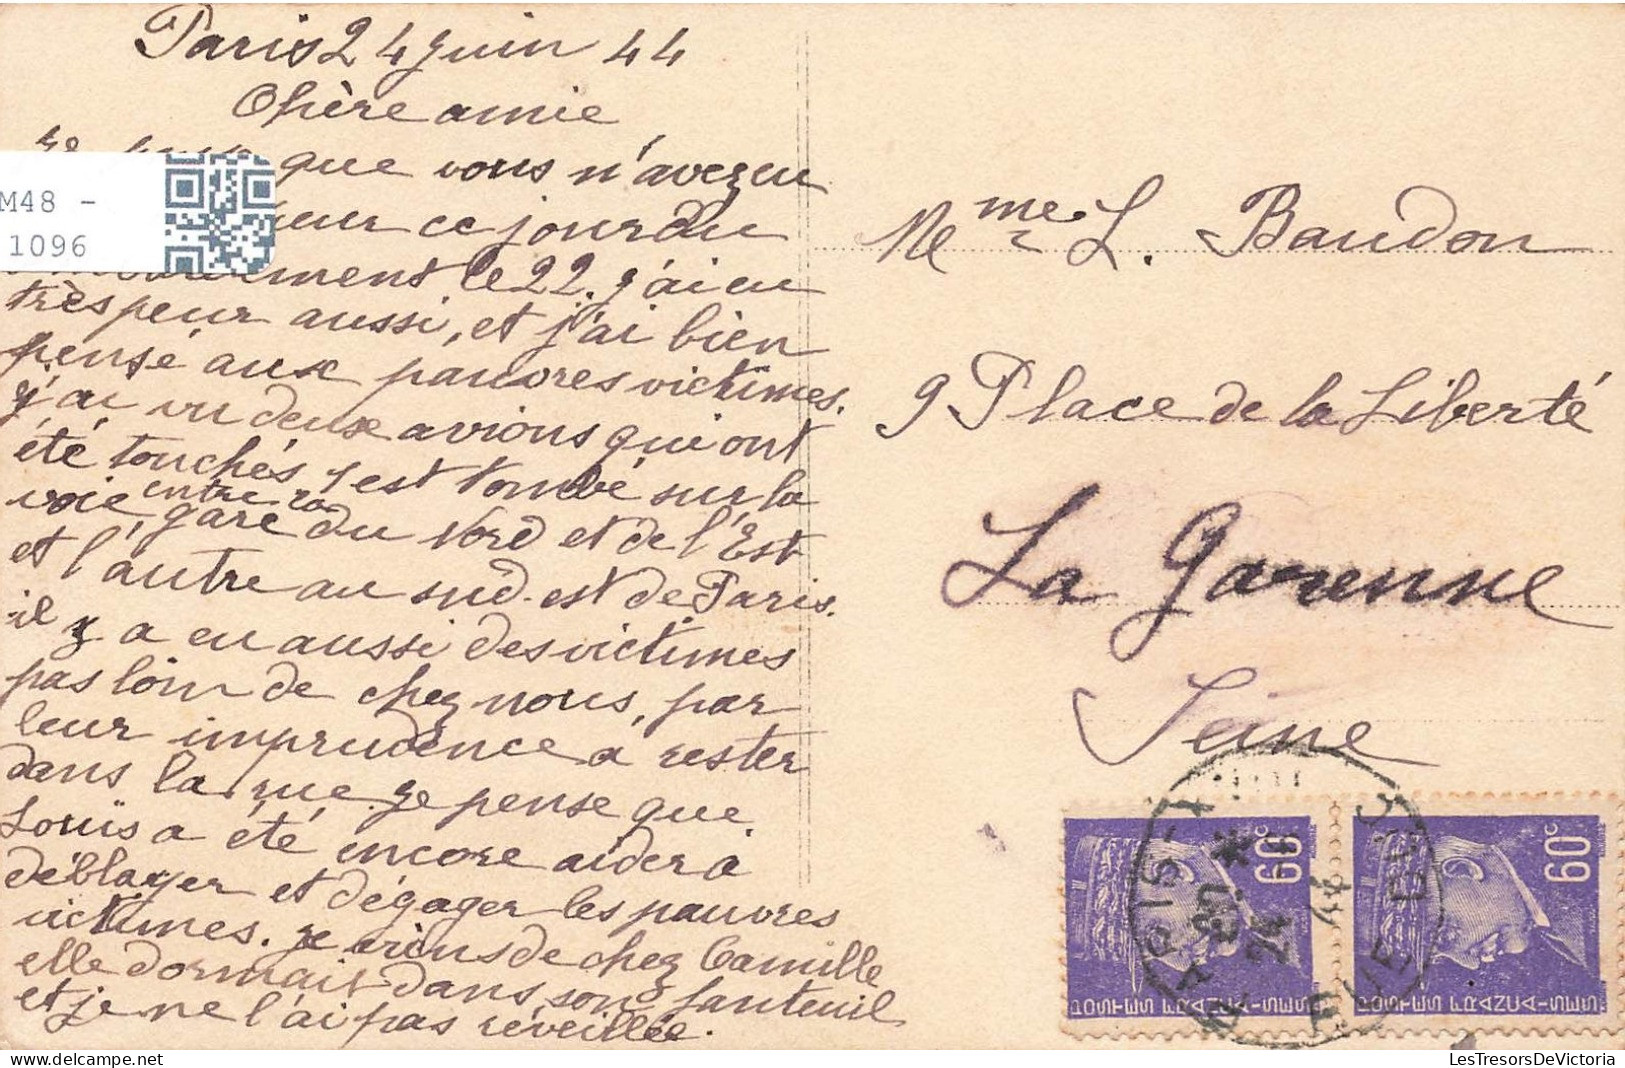 Paris 24 juin 44
Chère amie
que vous n'avez eu
peur ce jour du
le 22. j'ai eu
très peur aussi, et j'ai bien
pensé aux pauvres victimes.
j'ai vu deux avions qui ont
été touchés 1 est tombé sur la
voie entre la gare du Nord et de l'Est
et l'autre au sud-est de Paris.
il y a eu aussi des victimes
pas loin de chez nous, par
leur imprudence a rester
dans la rue. je pense que
Louis a été encore aider à
déblayer et dégager les pauvres
victimes. je viens de chez Camille
elle dormait dans son fauteuil
et je ne l'ai pas réveillée.
M48 -
1096
Mme L. Baudon
9 Place de la Liberté
La Garenne
Seine
60c
60c
POSTES FRANÇAISES
POSTES FRANÇAISES
PARIS
24
44
LesTresorsDeVictoria